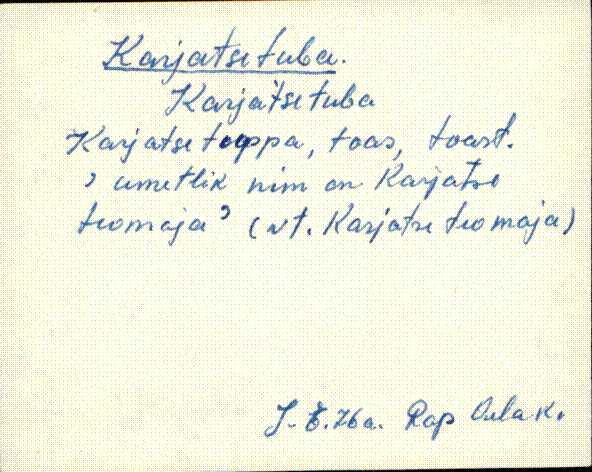 Karjatse tuba.
Karjatse tuba
Karjatse tooppa, toas, toast.
, ametlik nim on Karjatse
teomaja' (vt. Karjatse teomaja)
J. E. 76a. Rap